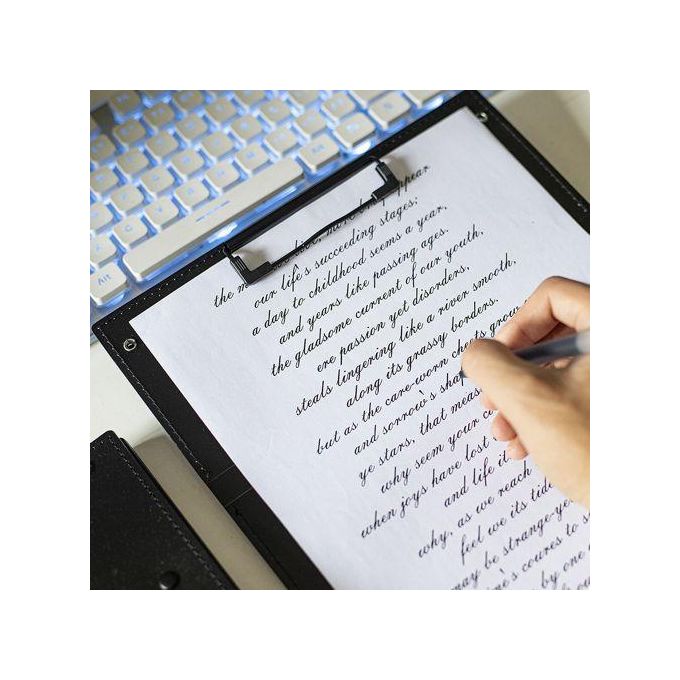 Alt
the live, more appear
our life's succeeding stages;
a day to childhood seems a year,
and years like passing ages.
the gladsome current of our youth,
ere passion yet disorders,
steals lingering like a river smooth,
along its grassy borders.
but as the care-worn cheeks grow
and sorrow's
ye stars, that
why seem your
when joys have lost
and life
why, as we reach
feel we its tide
may be
coures to
by one